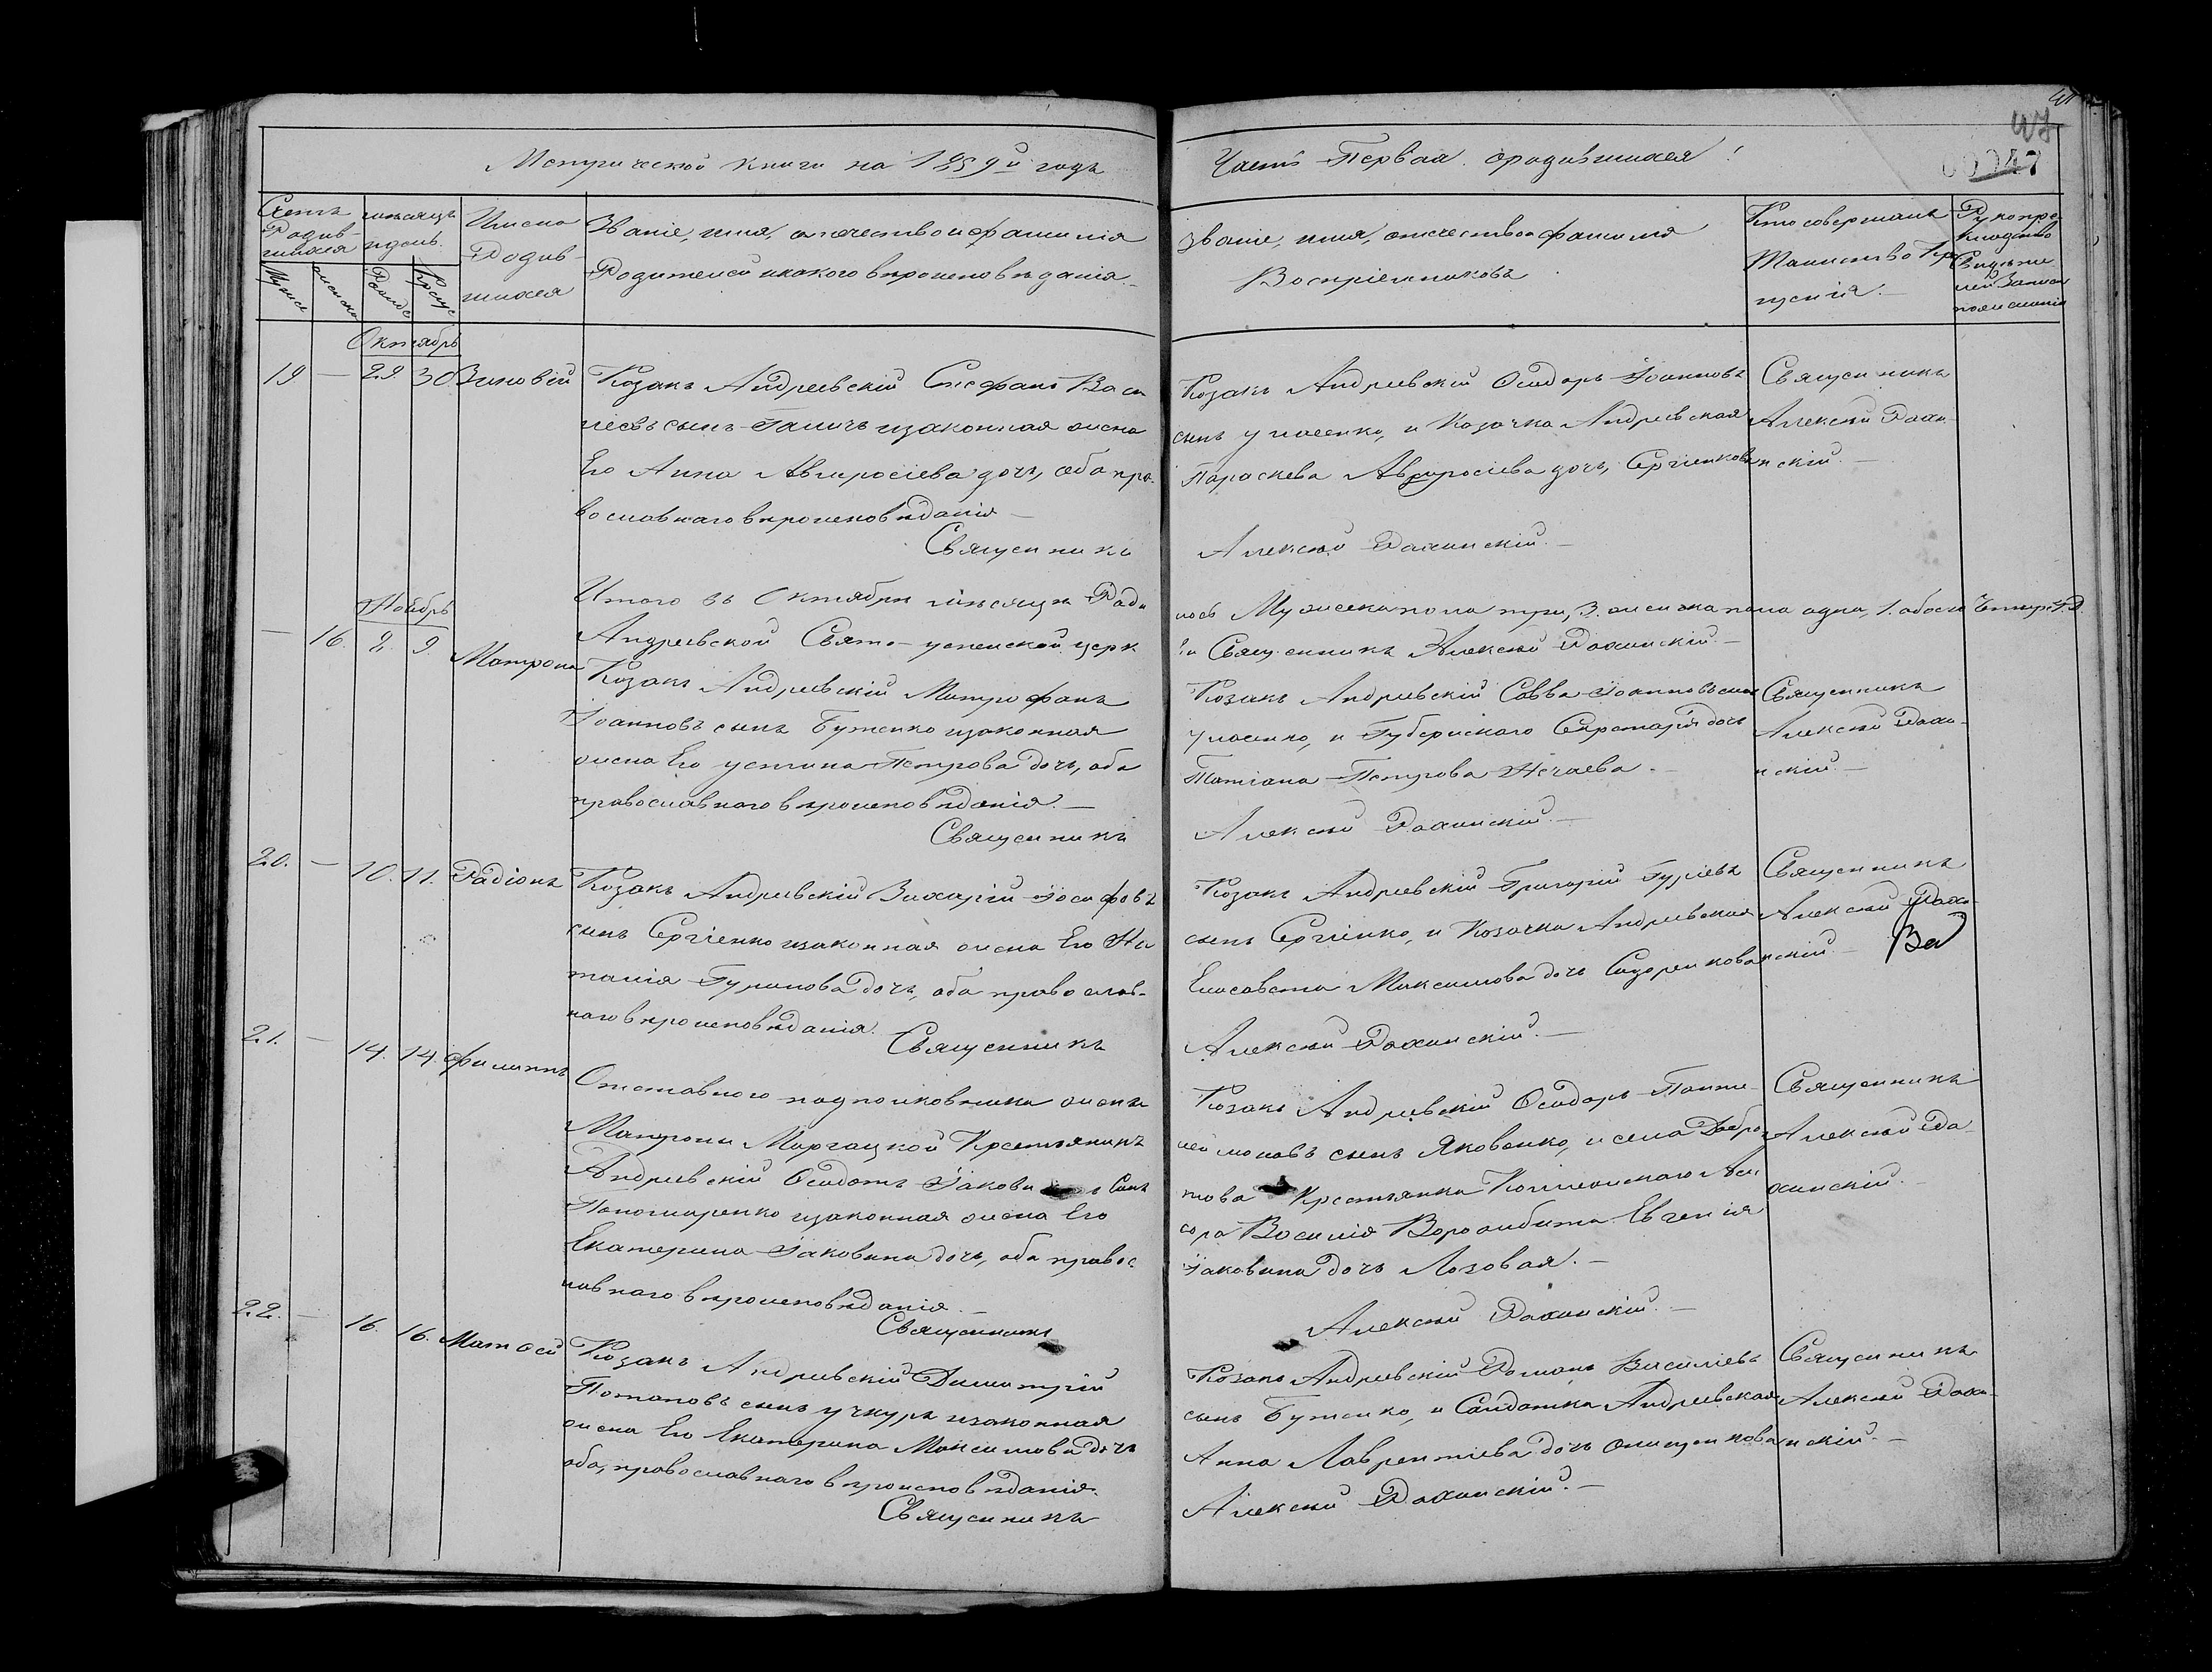 Метрической книги на 1859й годъ
Часть Первая о родившихся
47
00047
Счетъ Родив-шихся
мѣсяцъ и день.
Имена Родив-шихся
Званіе, имя, отечество и фамилія
Родителей и какого вѣроисповѣданія.
Званіе, имя, отчество и фамилія
Воспріемниковъ
Кто совершалъ
Таинство Кре
щенія.
Рукопри-
кладство
Свидѣте
лей Записи
пожеланію
Октябрь
19 — 29. 30 Зиновій
Козакъ Андреевскій Стефанъ Васи
лievъ сынъ Галичъ изаконная жена
Его Анна Амвросіева дочь, оба пра-
вославнаго вѣроисповѣданія —
Священникъ
Козакъ Андреевскій Ѳеодоръ Іоанновъ
сынъ Уласенко, и Козачка Андреевская
Параскева Амвросіева дочь, Сергіенкова
Алексѣй Рахинскій. —
Священникъ
Алексѣй Рахи-
нскій. —
Итого въ Октябрѣ мѣсяцѣ Роди
лось Мужеска пола три, 3. женска пола одна, 1. обоего Четыре 4.
Андреевской Свято-успенской церк
ви Священникъ Алексѣй Рахинскій —
Ноябрь
— 16. 8. 9. Матрона
Козакъ Андреевскій Митрофанъ
Іоанновъ сынъ Бутенко изаконная
жена Его Устина Петрова дочь, оба
православнаго вѣроисповѣданія. —
Священникъ
Козакъ Андреевскій Савва Іоанновъ сынъ
Уласенко, и Губернскаго Секретаря дочь
Татіана Петрова Нечаева. —
Алексѣй Рахинскій. —
Священникъ
Алексѣй Рахи-
нскій. —
20. — 10. 11. Радіонъ
Козакъ Андреевскій Захарій Іосифовъ
сынъ Сергіенко изаконная жена Его На
талія Гуріанова дочь, оба православ-
наго вѣроисповѣданія.
Священникъ
Козакъ Андреевскій Григорій Гуріевъ
сынъ Сергіенко, и Козачка Андреевская
Елисавета Максимова дочь Сидоренкова
Алексѣй Рахинскій. —
Священникъ
Алексѣй Рахи-
нскій. —
21. — 14. 14. Филиппъ
Отставного подполковника жены
Матроны Маргацкой Крестьянинъ
Андреевскій Ѳеодотъ Іакови сынъ
Пономаренко изаконная жена Его
Екатерина Іаковина дочь, оба правос
лавнаго вѣроисповѣданія. —
Священникъ
Козакъ Андреевскій Ѳеодоръ Панте-
леймоновъ сынъ Яковенко, и села Добро
това Крестьянка Коллежскаго Асе
сора Василія Ворожбита Евгенія
Іаковина дочь Лозовая. —
Алексѣй Рахинскій. —
Священникъ
Алексѣй Ра-
хинскій. —
22. — 16. 16. Матѳей
Козакъ Андреевскій Димитрій
Потаповъ сынъ Учкуръ изаконная
жена Его Екатерина Максимова дочь
оба, православнаго вѣроисповѣданія.
Священникъ
Козакъ Андреевскій Романъ Василіевъ
сынъ Бутенко, и Салдатка Андреевская
Анна Лаврентіева дочь Онищенкова
Алексѣй Рахинскій. —
Священникъ
Алексѣй Рахи-
нскій. —